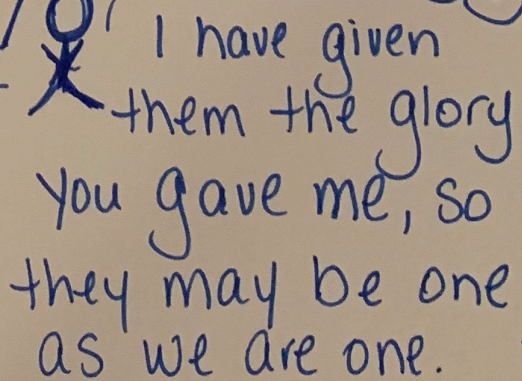 I have given
them the glory
you gave me, so
they may be one
as we are one.